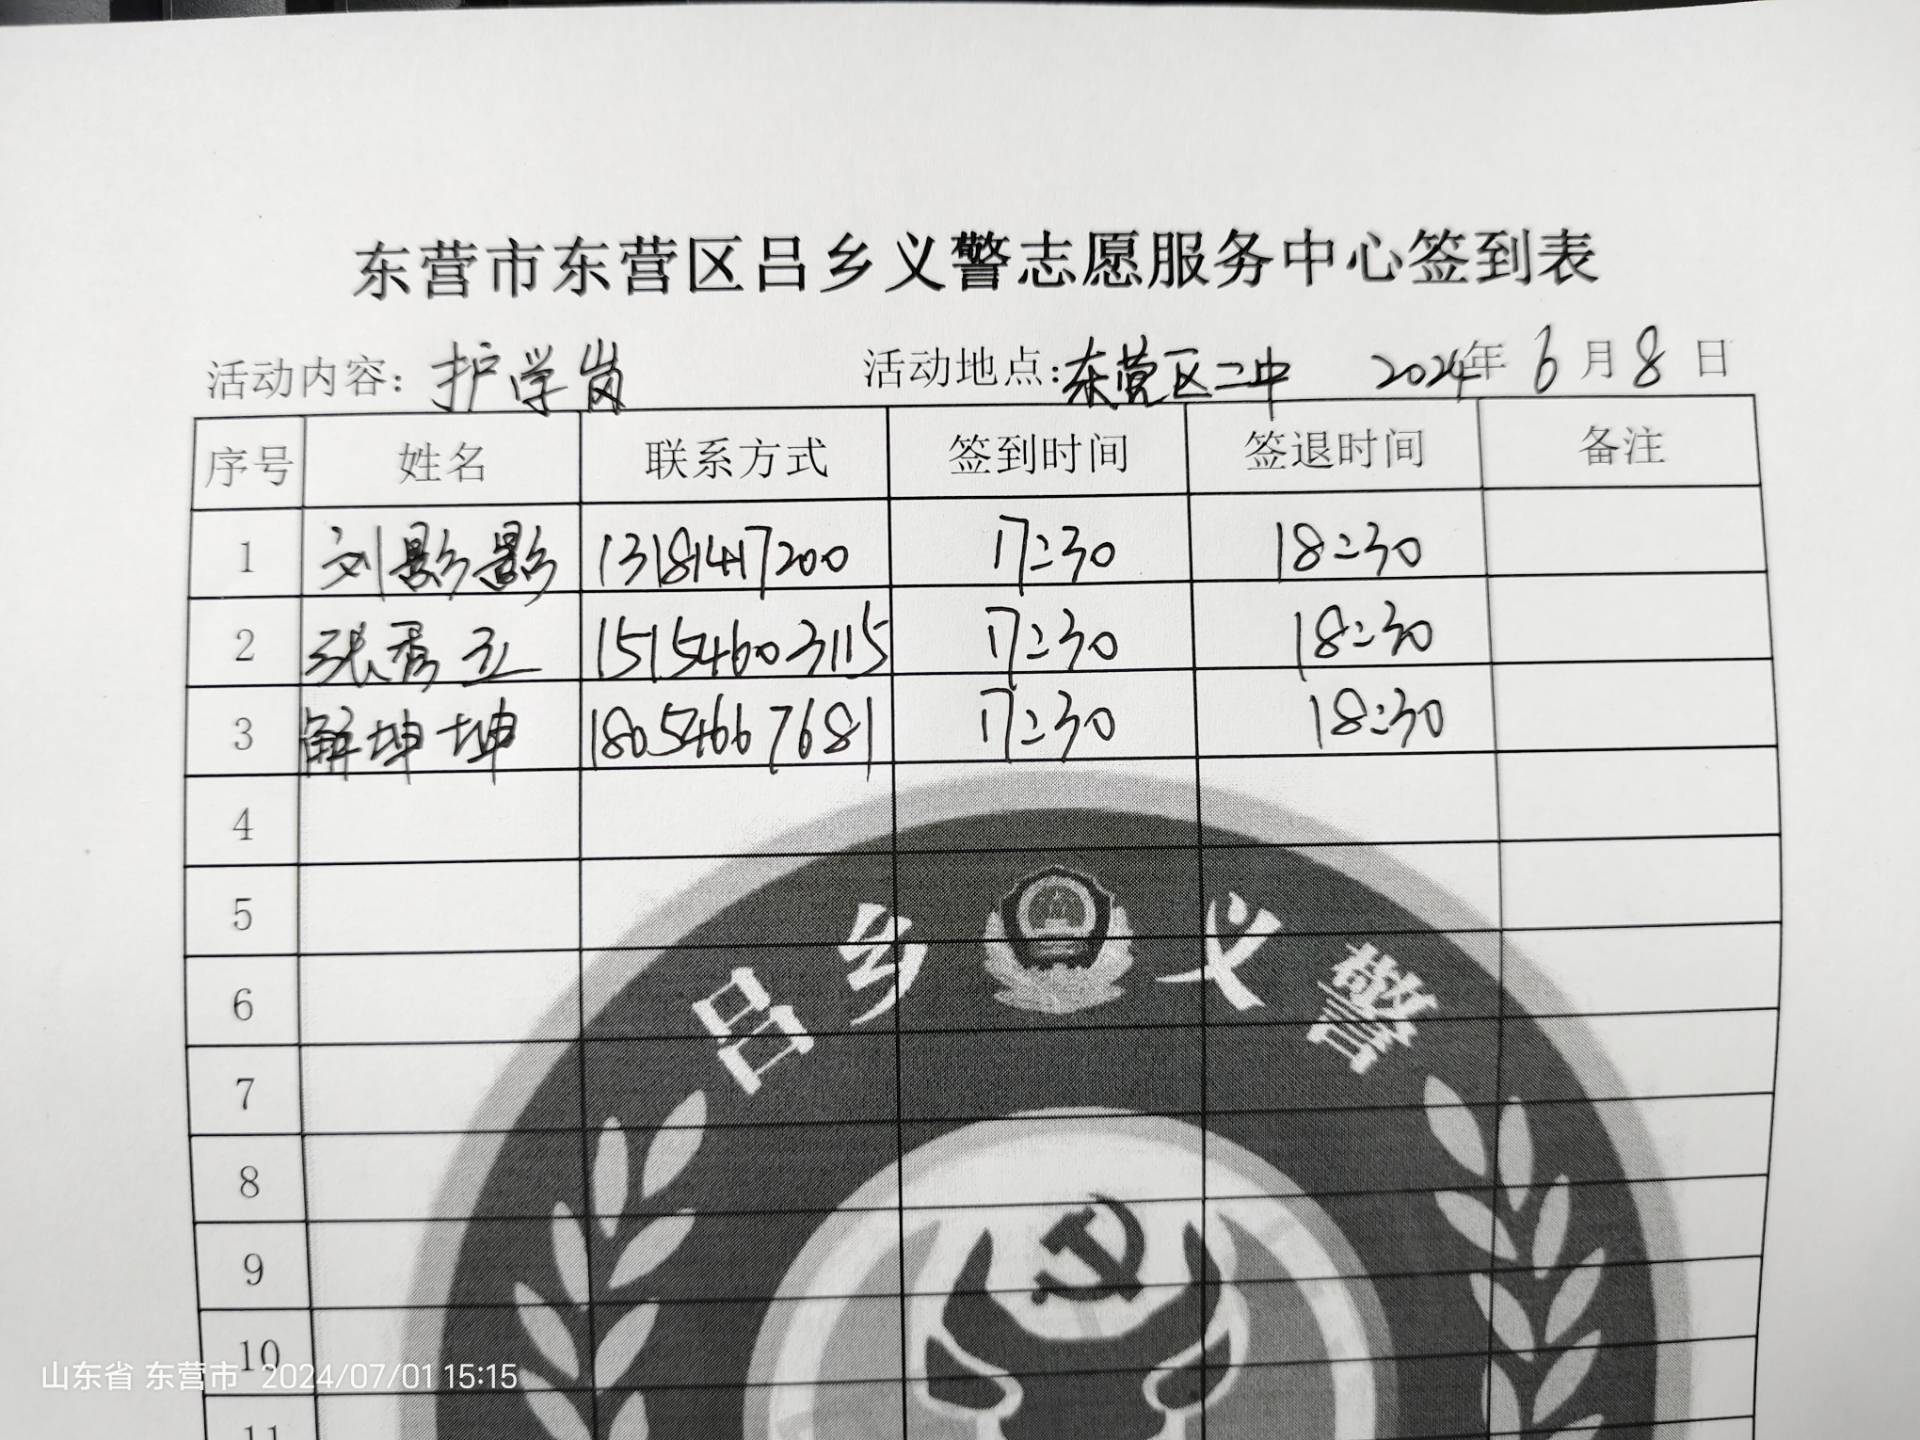 东营市东营区吕乡义警志愿服务中心签到表
活动内容：护学岗 活动地点：东营区二中 2024年6月8日
序号 姓名 联系方式 签到时间 签退时间 备注
1 刘影影 13181417200 17:30 18:30
2 张秀立 15154603115 17:30 18:30
3 解坤坤 18054667681 17:30 18:30
4
5
吕乡义警
6
7
8
9
10
11
山东省 东营市 2024/07/01 15:15